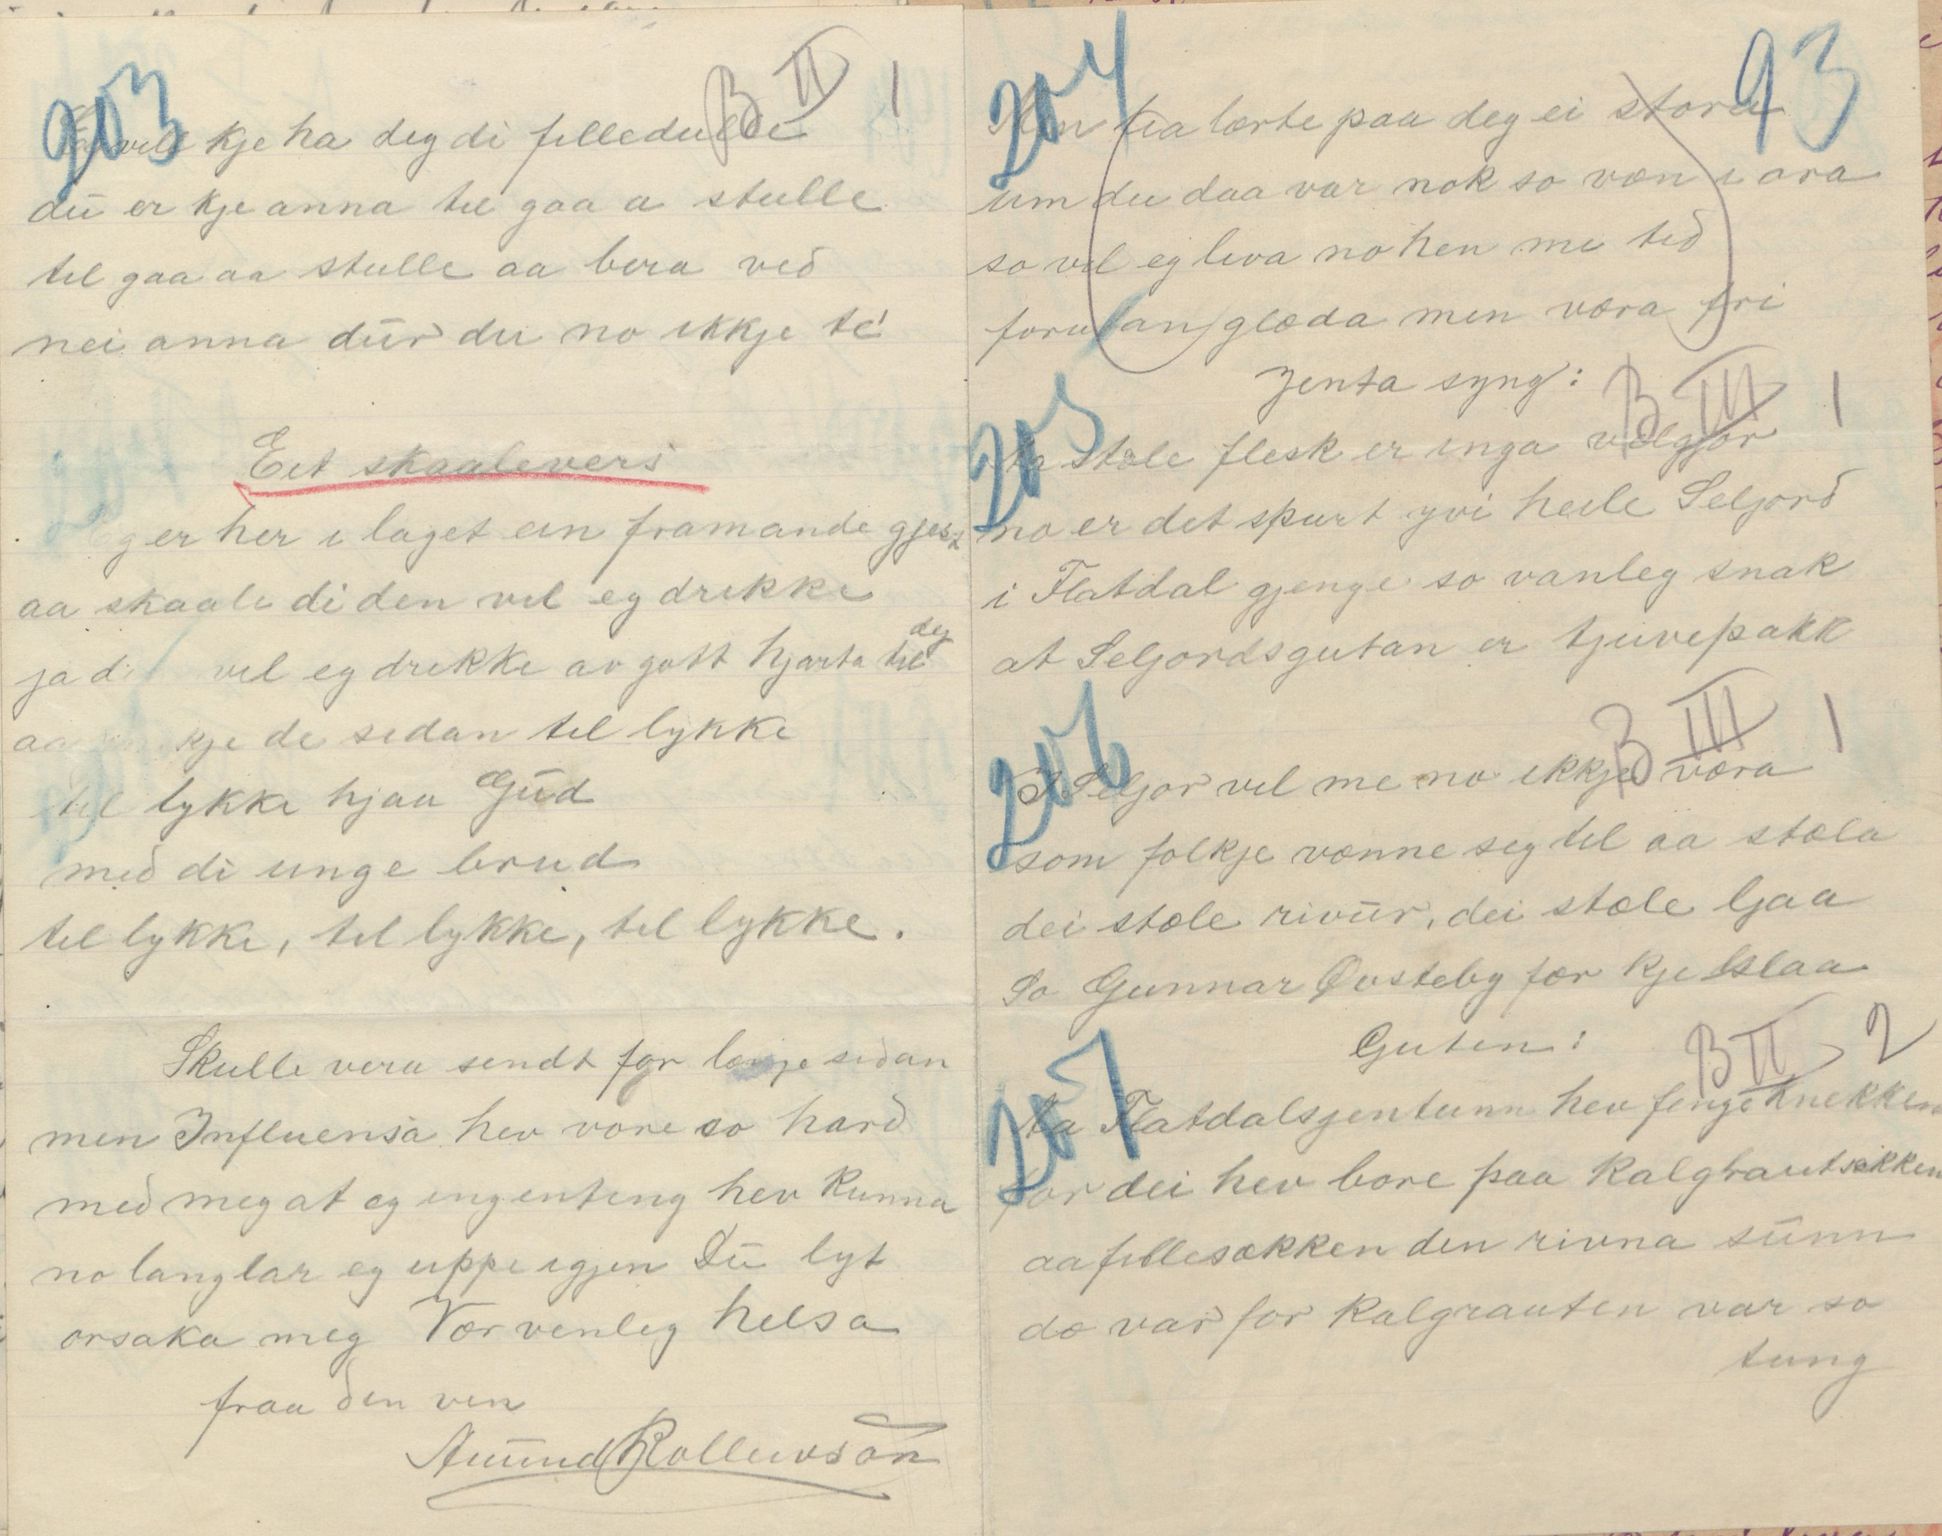 203
B II 1
vil kje ha deg di filledulle
du er kje anna til gaa a stulle
til gaa aa stulle aa bera ved
nei anna dur du no ikkje te
Eit skaalevers
Eg er her i laget ein framande gjest
aa skaale di den vil eg drekke
ja di vil eg drekke av gott hjarta til deg
aa kje de sidan til lykke
til lykke hjaa Gud
med di unge brud
til lykke, til lykke, til lykke.
Skulle vera sendt for lengje sidan
men Influensa hev vore so hard
med meg at eg ingenting hev kunna
no langlar eg uppe igjen Du lyt
orsaka meg Vær venleg helsa
fraa den ven
Aumund Rollevson
93
204
Men fra lærte paa deg ei stora
um du daa var nok so væn i ara
so vil eg leva no hen mi tid
forutan glæda men væra fri
Jenta syng:
205
B III 1
Aa stæle flesk er inga vælgjor
no er det spurt yvi heile Seljord
i Flatdal gjenge so vanleg snak
at Seljordsgutan er tjuvepakk
206
B III 1
I Seljor vil me no ikkje væra
som folkje vænne seg til aa stæla
dei stæle rivur, dei stæle ljaa
So Gunnar Øvsteby fær kje slaa
Guten:
207
B II 2
Aa Flatdalsjentunn hev fenge knekken
for dei hev bore paa kalgrautsekken
aa fillesækken den rivna sunn
dæ var for kalgrauten var so
tung